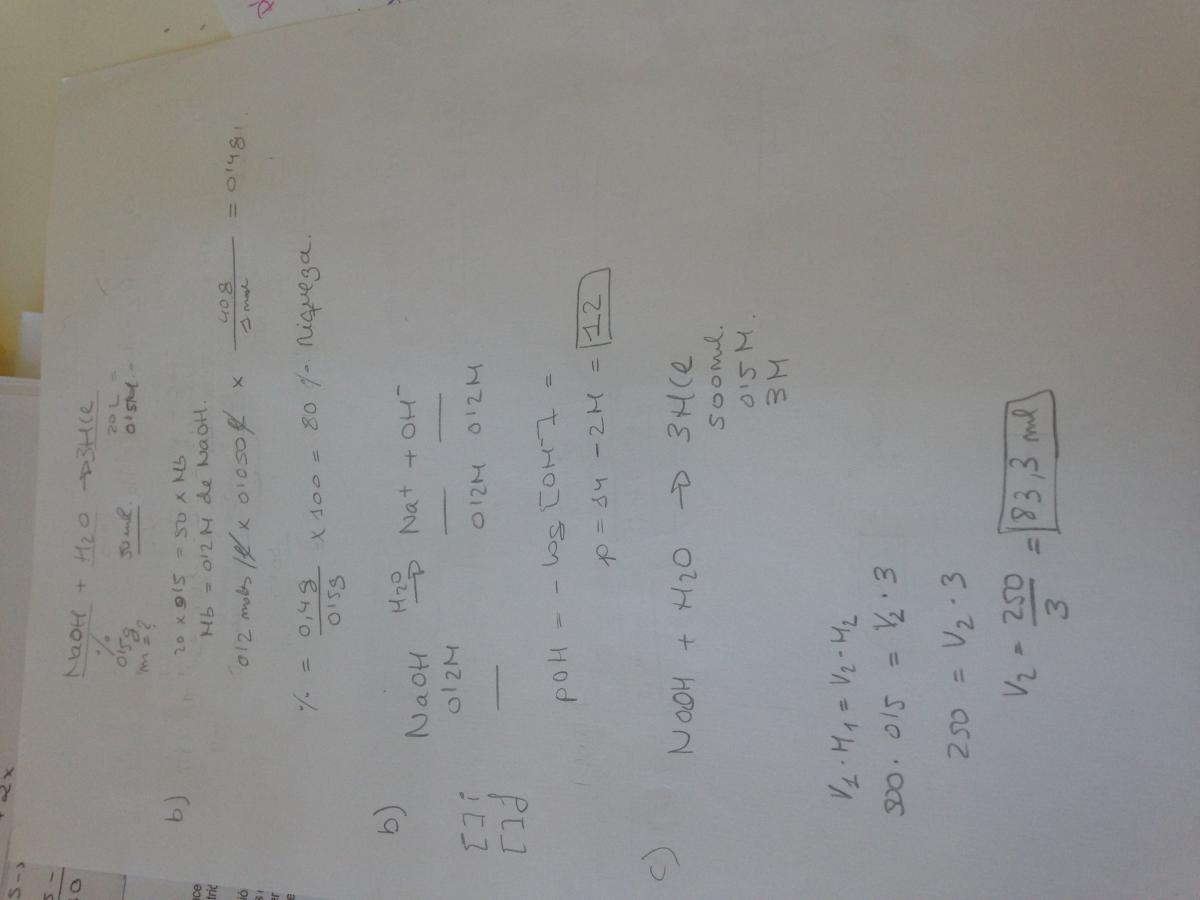 NaOH + H2O → 3HCl
% 50 ml. 20 L =
0'5g 0'5M -
m = ?
b) 20 x 0'5 = 50 x Mb
Mb = 0'2 M de NaOH.
0'2 mols/l x 0'050 l x 40g/1mol = 0'4g.
% = 0,4g/0'5g x 100 = 80 % riqueza.
b) NaOH H2O→ Na+ + OH-
[ ]i 0'2M — —
[ ]f — 0'2M 0'2M
pOH = - log [OH-] =
p = 14 - 2M = 12
c) NaOH + H2O → 3HCl
500ml.
0'5 M.
3M
V1 · M1 = V2 · M2
500 · 0'5 = V2 · 3
250 = V2 · 3
V2 = 250/3 = 83,3 ml